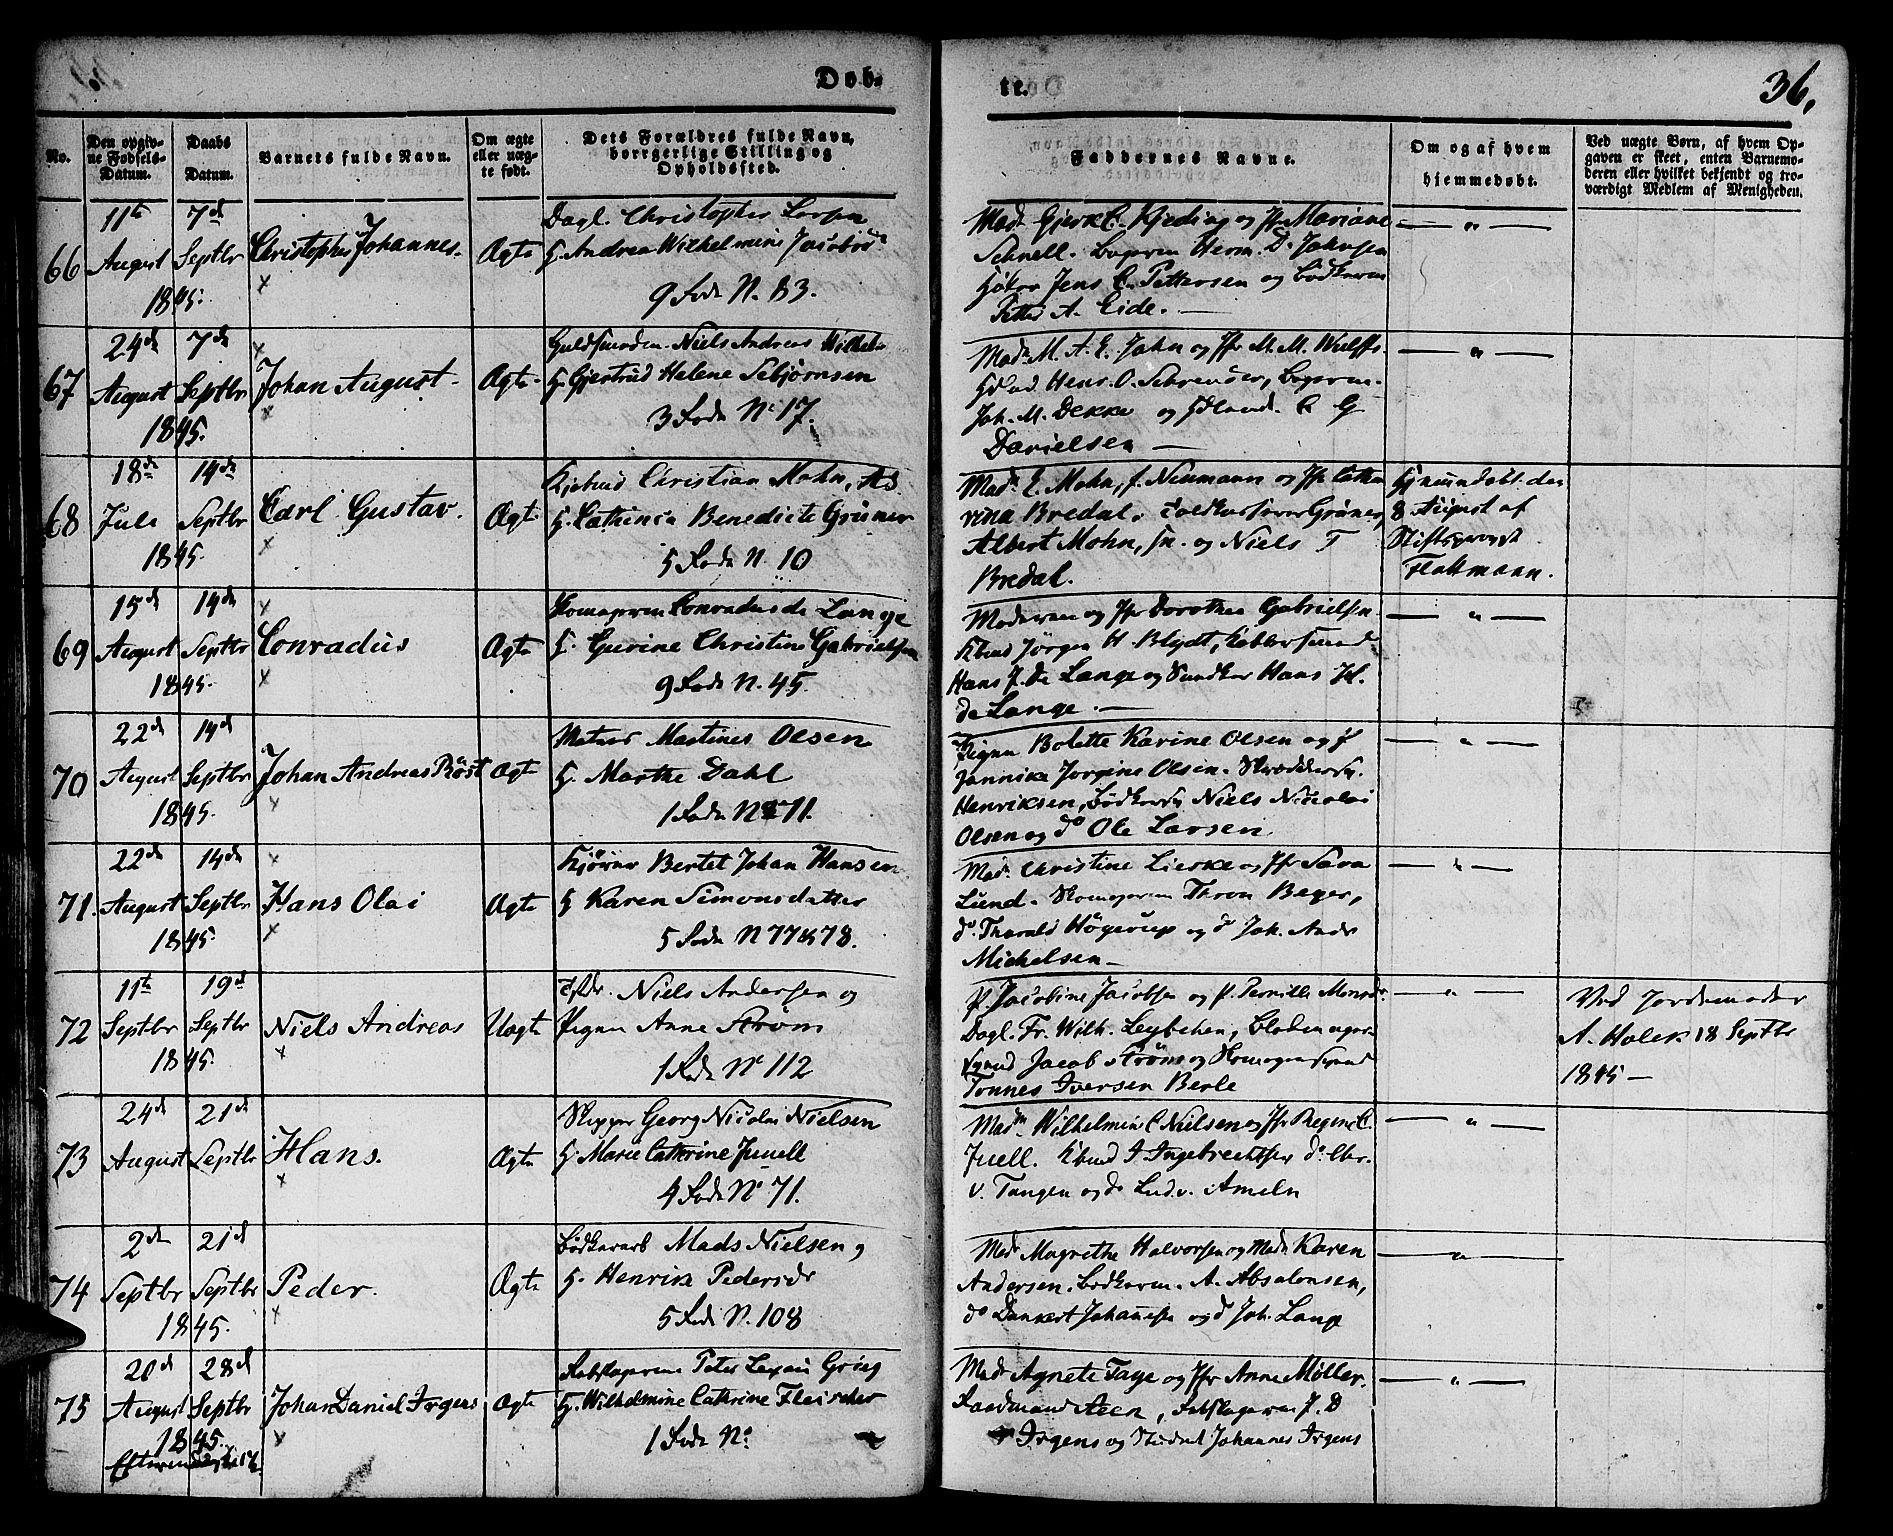 Døb-
te.
36.
No.
Den opgiv-
ne Fødsels-
Datum.
Daabs
Datum.
Barnets fulde Navn.
Om ægte
eller uæg-
te født.
Dets Forældres fulde Navn,
borgerlige Stilling og
Opholdssted.
Faddernes Navne.
Om og af hvem
hjemmedøbt.
Ved uægte Børn, af hvem Op-
gaven er skeet, enten Barnemo-
deren eller hvilket bekjendt og tro-
værdigt Medlem af Menigheden.
66
11te August 1845.
7de Septbr
Christopher Johannes.
Ægte
Dagl. Christopher Larsen
H. Andrea Wilhelmine Jacobsd
9 Rode N. 83.
Mad. Kjeding og Jfr Mariane
Schnell. Bogeren Herm. D. Johnsen
Høker Jens C. Pettersen og Bødkeren
Petter A. Eide. —
— " —
67
24de August 1845.
7de Septbr
Johan August.
Ægte.
Guldsmeden Niels Andreas
H. Gjertrud Helene Sebjørnsen
3 Rode No 17.
Mad. M. A. E. Jahn og Jfr M. M. Wulff.
Henr. O. Schrøuder,
Joh. M. Dekke og C G
Danielsen —
— " —
68
18de Juli 1845.
14de Septbr
Carl Gustav.
Ægte
Kjøbmd Christian Mohn,
H. Cathinca Benedicte Grüner
5 Rode N. 10
Mad. E. Mohn, f. Neumann og Jfr Catha
rina Bredal. Grüner,
Albert Mohn, sn. og Niels T
Bredal.
Hjemmedøbt den
8 August af
Stiftsprovst
Flottmann.
69
15de August 1845.
14de Septbr
Conradus
Ægte
Skomageren Conradus de Lange
H. Gurine Christine Gabrielsen
9 Rode N. 45.
Moderen og Jfr Dorothea Gabrielsen
Kbmd Jørgen H. Blydt, Kobbersmed
Hans J. de Lange og Hans H.
de Lange. —
— " —
70
22de August 1845.
14de Septbr
Johan Andreas Røst
Ægte
Matros Martines Olsen
H. Marthe Dahl
1 Rode No 71.
Pigen Bolette Karine Olsen og J
Jannika Jorgine Olsen. Skrædders.
Henriksen, Bødkers. Niels Nicolai
Olsen og do Ole Larsen.
— " —
71.
22de August 1845.
14de Septbr
Hans Olai
Ægte
Bertel Johan Hansen
H Karen Simonsdatter
5 Rode N 77 & 78.
Mad. Christine Lieske og Jfr Sara
Lund. Skomageren Thron Beyer,
do. Tharald Høgerup og do Joh. Andr
Michelsen —
— " —
72
11te Septbr 1845.
19de Septbr
Niels Andreas
Uægte
Niels Andersen og
Pigen Anne Strøm
1 Rode No 112
P. Jacobine Jacobsen og P. Pernille Monsdr.
Dagl. Fr. Wilh. Leybchen,
Svend Jacob Strøm og Skomagersvend
Tønnes Iversen Berle
— " —
Ved Jordemoder
A. Holck 18 Septbr
1845 —
73
24de August 1845.
21de Septbr
Hans.
Ægte
Skipper Georg Nicolai Nielsen
H. Marie Cathrine Juuell
4 Rode No 71.
Mad. Wilhelmine C Nielsen og Jfr Regine C.
Juell. Kbmd J Ingebrechtsen do Chr.
v. Tangen og do Ludv. Ameln
— " —
74
2de Septbr 1845.
21de Septbr
Peder.
Ægte
Bødkerarb Mads Nielsen
H. Henrik Pedersdr
5 Rode N. 108
Mad. Magrethe Halvorsen og Mad. Karen
Andersen. Bødkeren. A. Absalonsen,
do Dankert Johannesen og do Joh. Lange
— " —
75
20de August 1845.
28de Septbr
Johan Daniel Irgens
Ægte
Rebslageren Peter Lexau Grieg
H. Wilhelmine Cathrine Fleischer
1 Rode No.
Mad. Agnete Faye og Jfr Anne Møller.
Raadmand Aeen, Rebslageren J. D
Irgens og Student Johannes Irgens
— " —